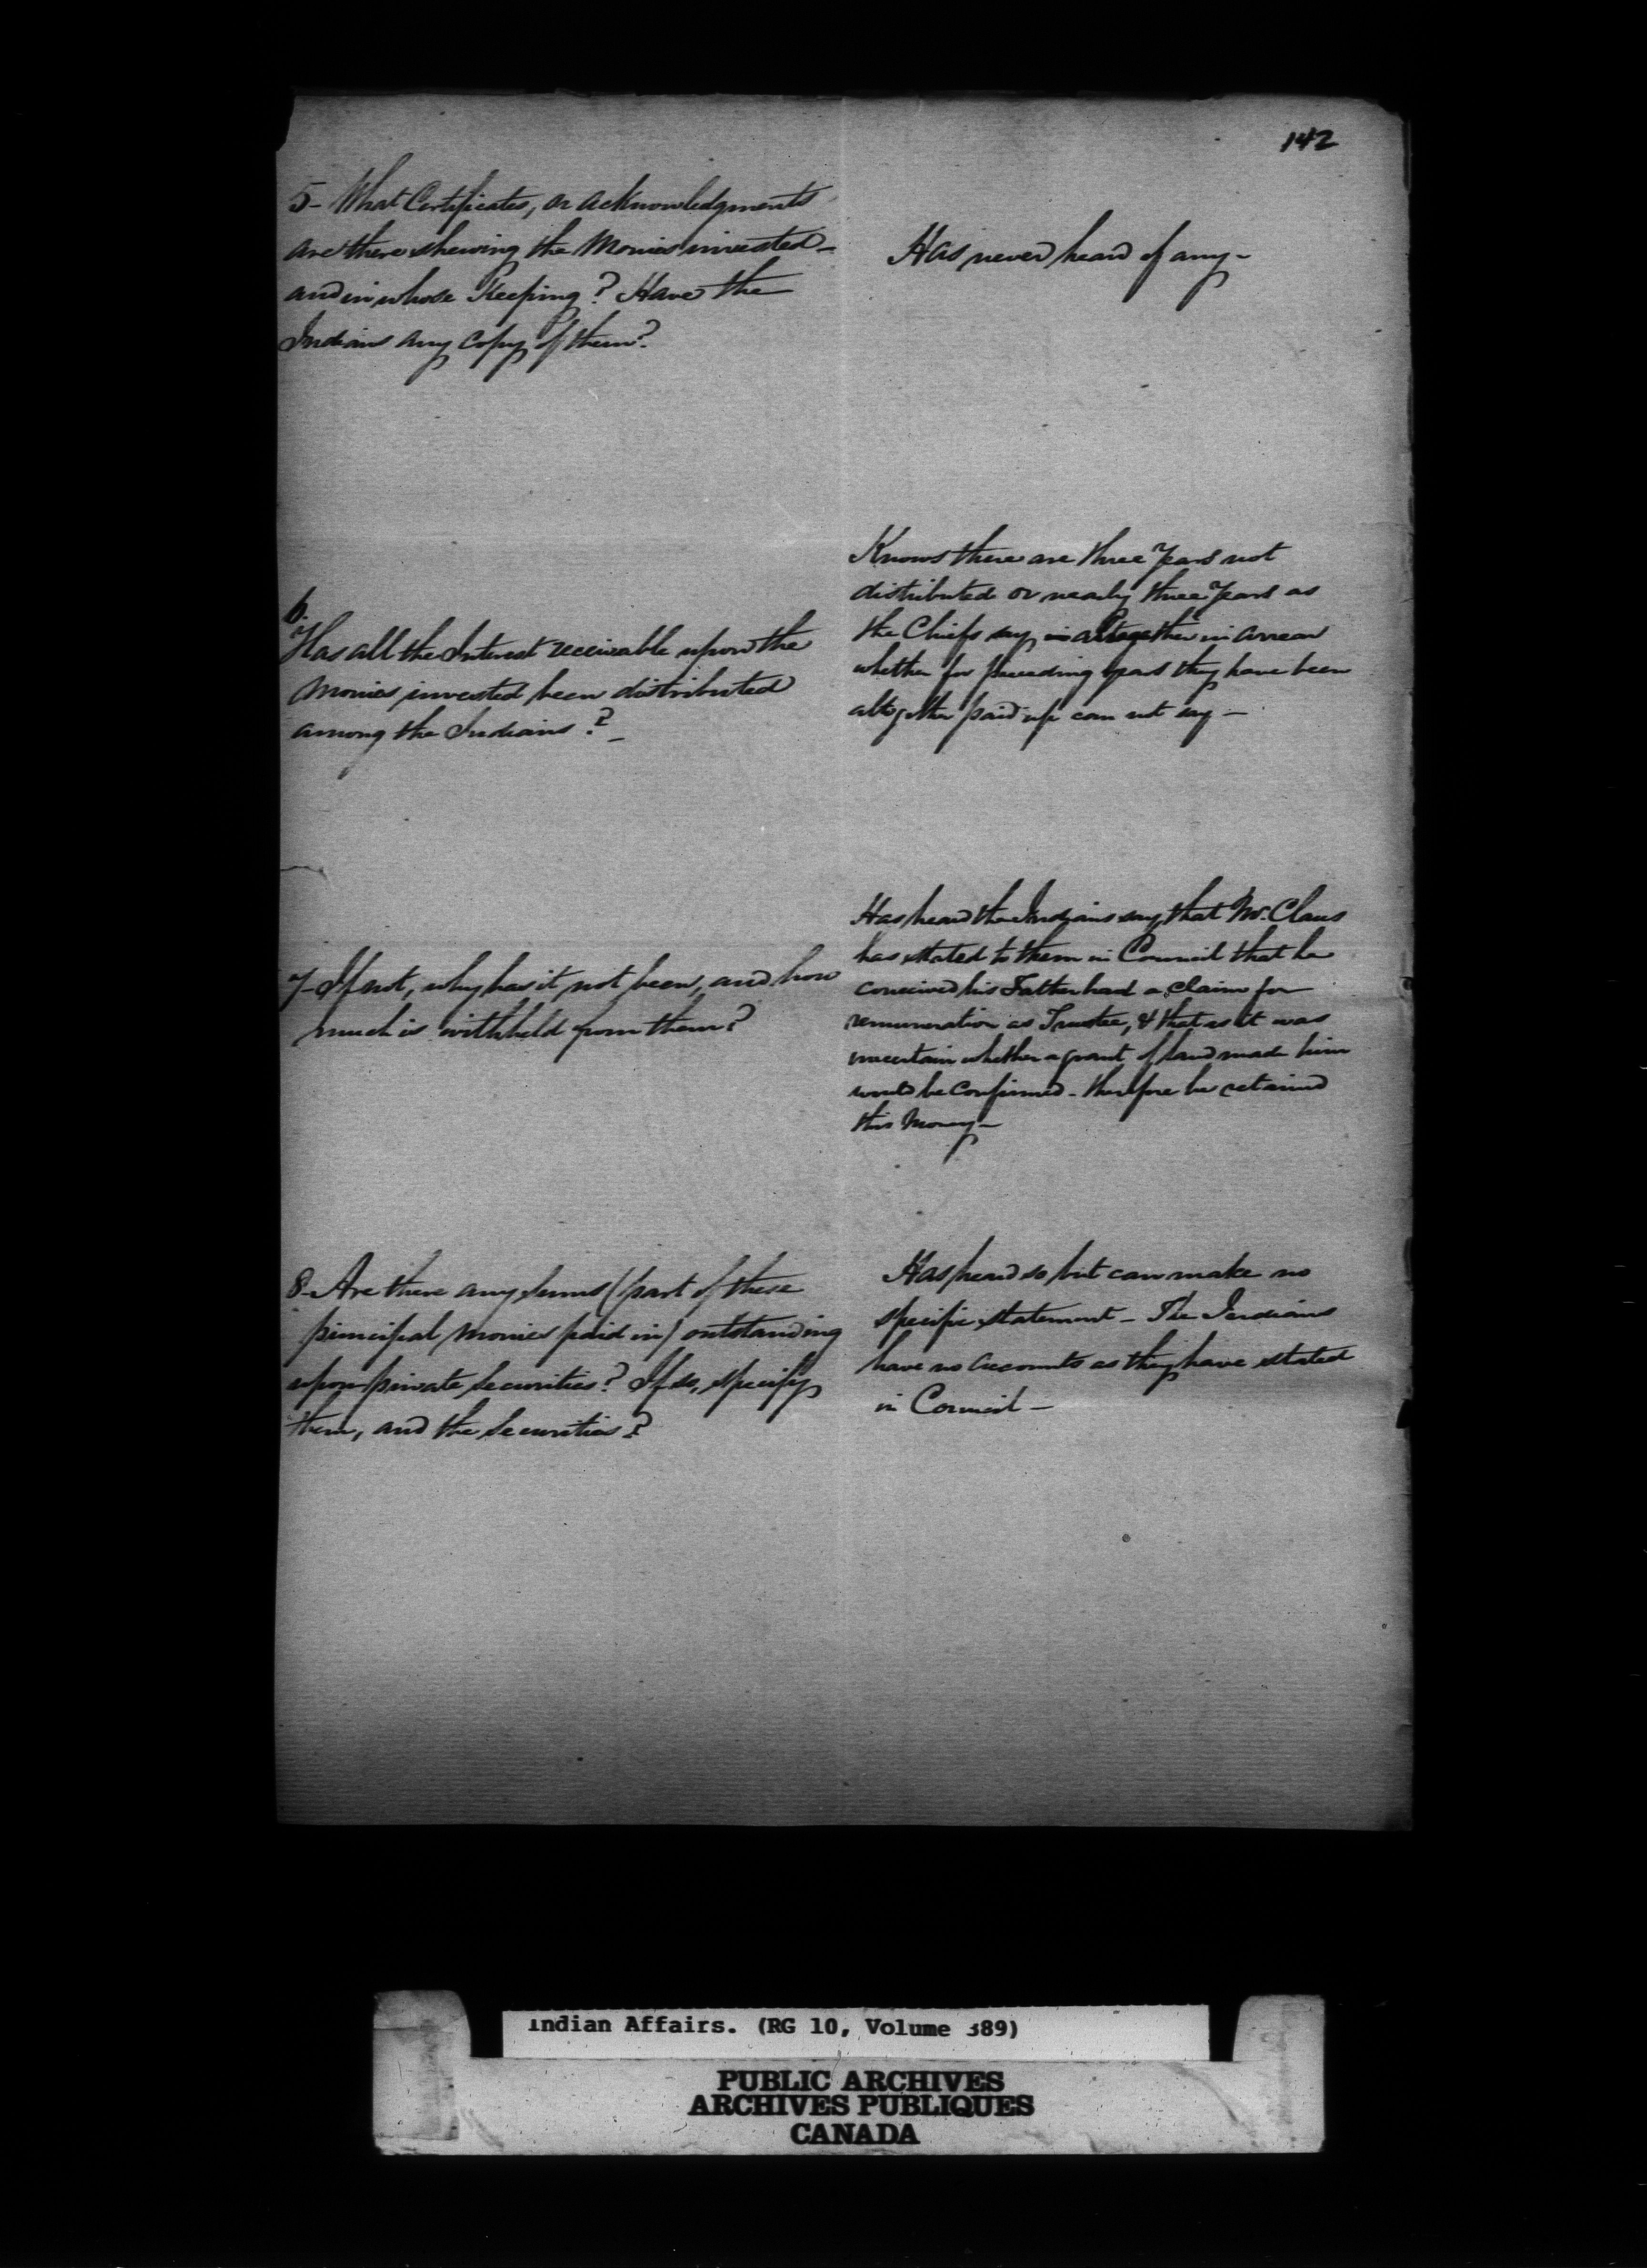 142
5- What Certificates, or acknowledgments
are there shewing the Monies invested -
and in whose Keeping? Have the
Indians any copy of them?
Has never heard of any -
6.
Has all the Interest receivable upon the
Monies invested been distributed
among the Indians? -
Knows there are three years not
distributed or nearly three years as
the Chiefs say is altogether in arrear
whether for preceding years they have been
altogether paid up can not say -
7- If not, why has it not been, and how
much is withheld from them?
Has heard the Indians say, that Mr. Claus
has stated to them in Council that he
conceived his Father had a claim for
remuneration as Trustee, & that as it was
uncertain whether a grant of land made him
would be confirmed - therefore he retained
this Money -
8- Are there any sums (part of these
principal Monies paid in) outstanding
upon private Securities? If so, specify
them, and the Securities?
Has heard so but can make no
specific statement - The Indians
have no accounts as they have stated
in Council -
Indian Affairs. (RG 10, Volume 389)
PUBLIC ARCHIVES
ARCHIVES PUBLIQUES
CANADA